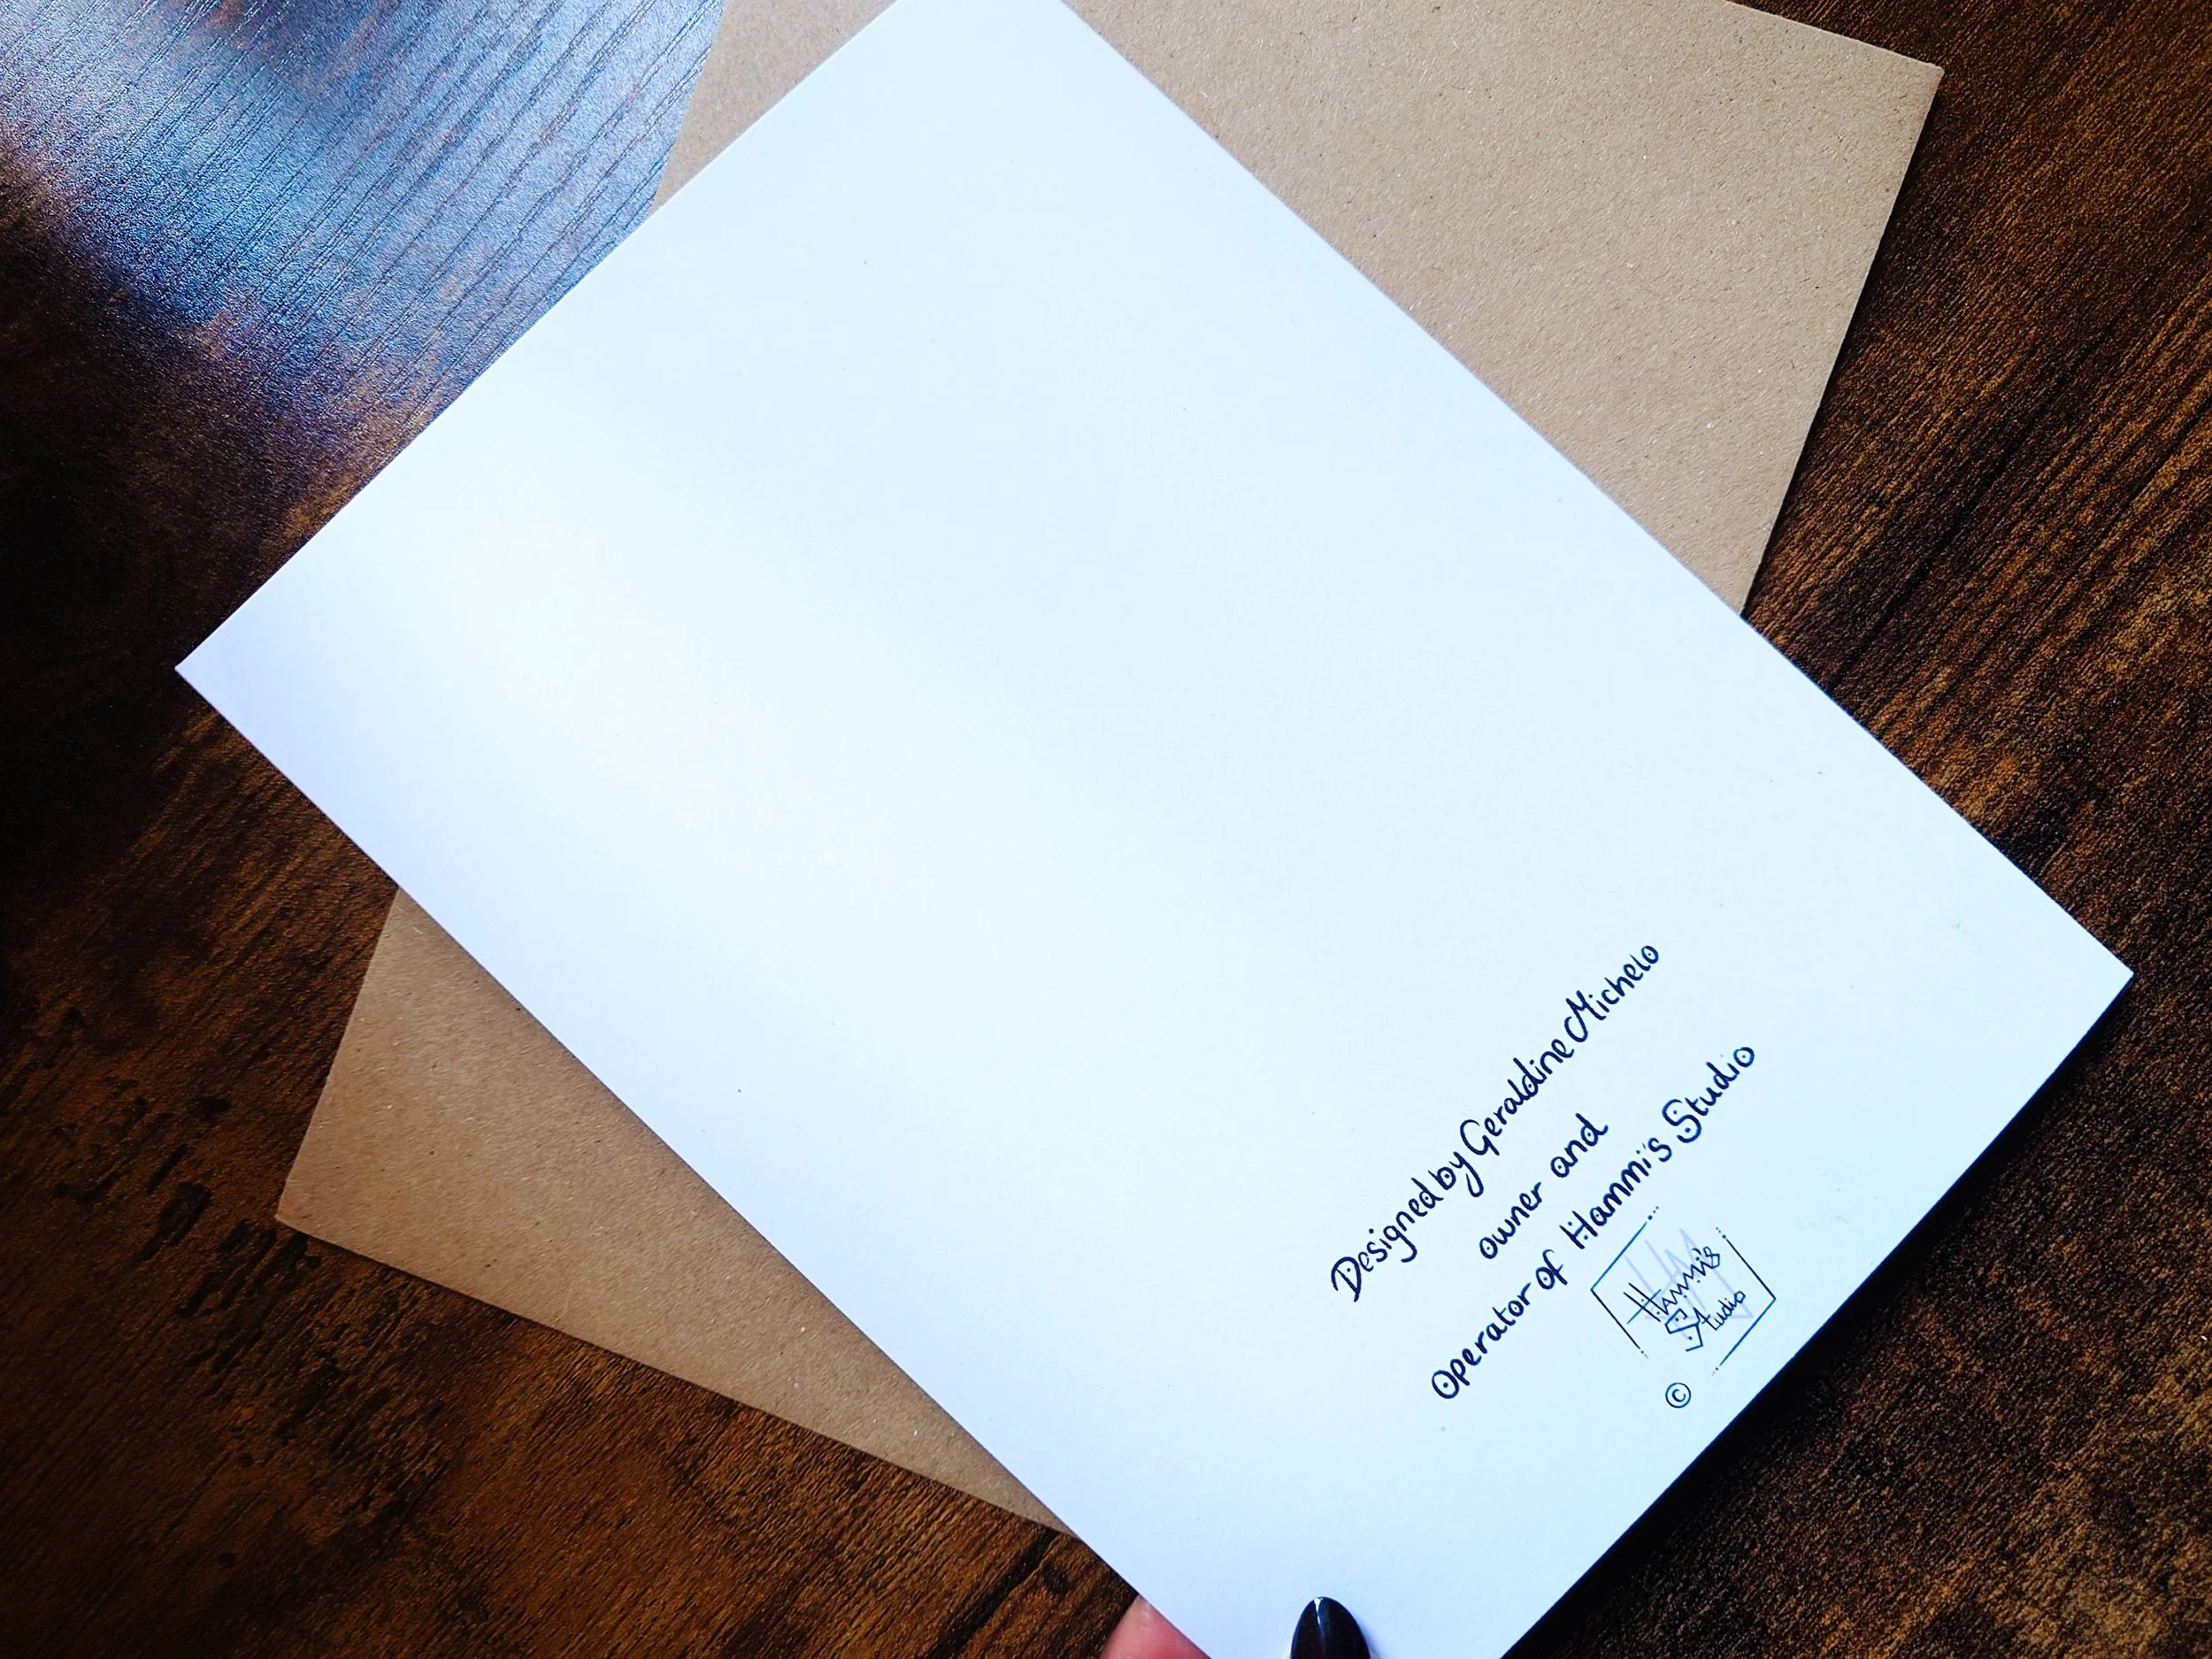 Designed by Geraldine Michelo
owner and
Operator of Hammi's Studio
Hammi's
Studio
©